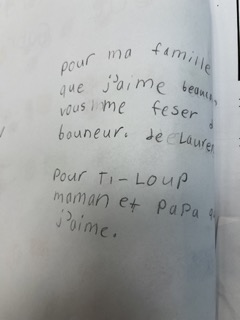 pour ma famille
que j'aime
vous me feser
bouneur. de
Pour Ti-Loup
maman et papa
j'aime.